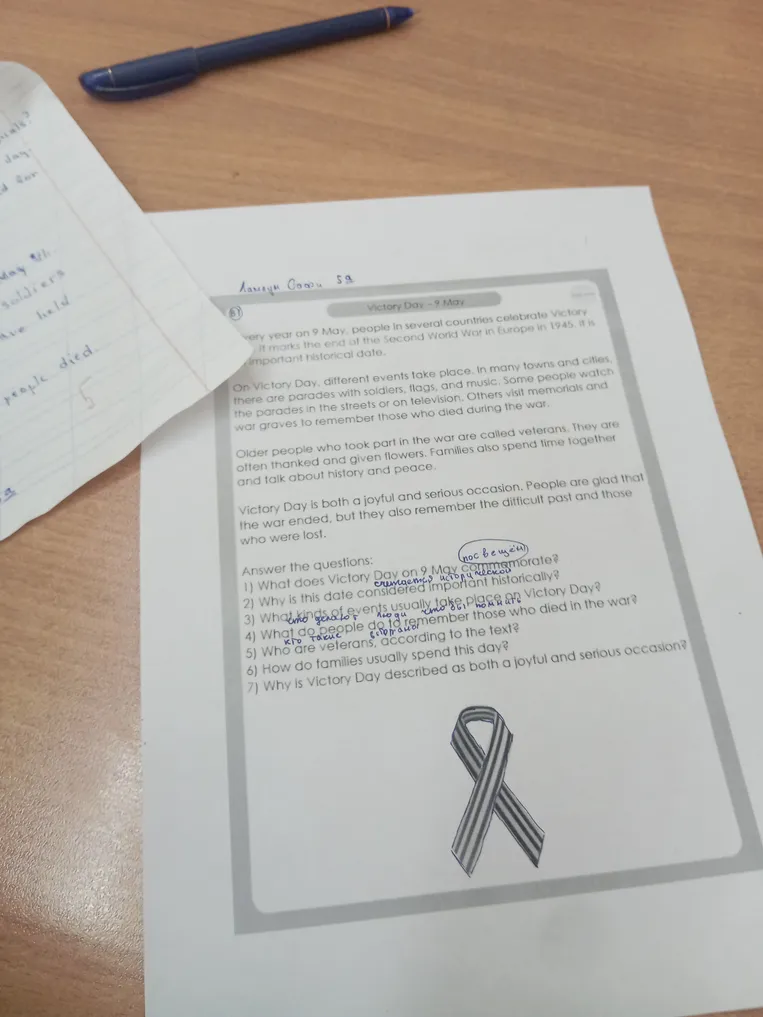 day
soldiers
have held
people died.
5
5а
Victory Day – 9 May
very year on 9 May, people in several countries celebrate Victory
it marks the end of the Second World War in Europe in 1945. It is
important historical date.
On Victory Day, different events take place. In many towns and cities,
there are parades with soldiers, flags, and music. Some people watch
the parades in the streets or on television. Others visit memorials and
war graves to remember those who died during the war.
Older people who took part in the war are called veterans. They are
often thanked and given flowers. Families also spend time together
and talk about history and peace.
Victory Day is both a joyful and serious occasion. People are glad that
the war ended, but they also remember the difficult past and those
who were lost.
Answer the questions:
посвещён
1) What does Victory Day on 9 May commemorate?
считается исторической
2) Why is this date considered important historically?
3) What kinds of events usually take place on Victory Day?
что делают люди что бы помнить
4) What do people do to remember those who died in the war?
кто такие
5) Who are veterans, according to the text?
6) How do families usually spend this day?
7) Why is Victory Day described as both a joyful and serious occasion?